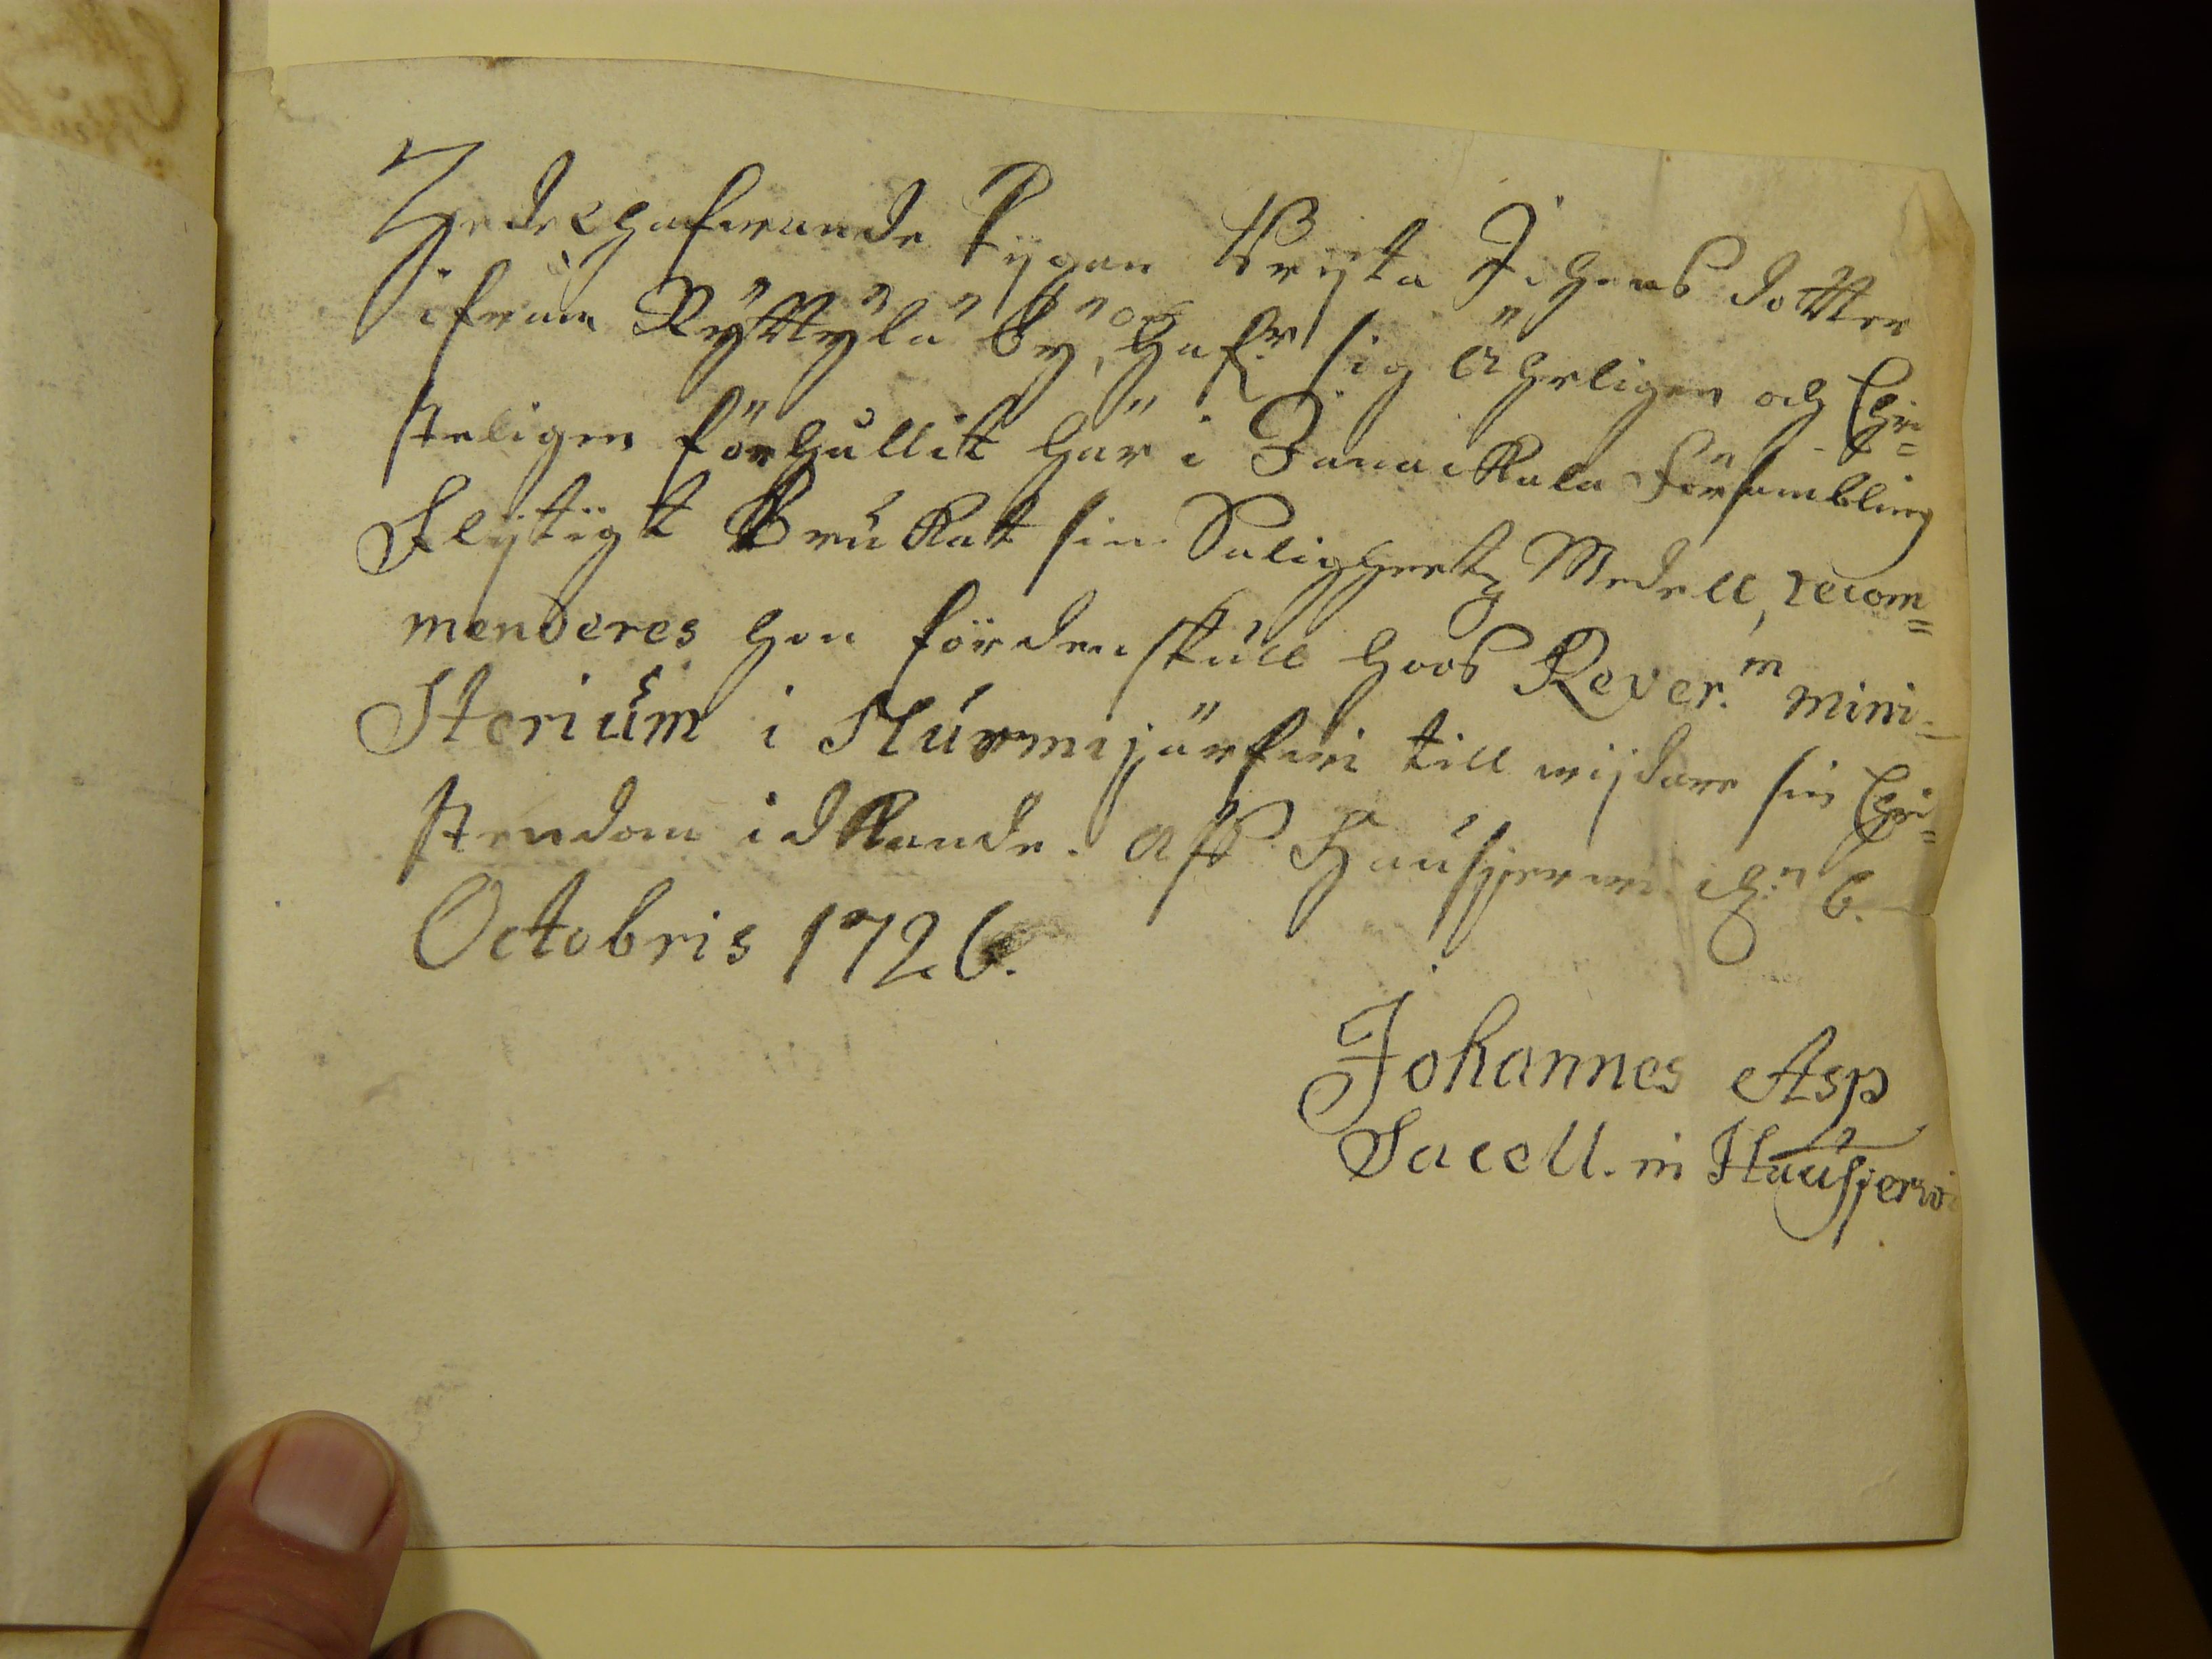 Zedelhafwande Pygan Brijta Johans dotter
ifrån Ryttylä by, hafr sig ährligen och Chri=
steligen förhållit här i Janackala Försambling
Flijtigt Brukat sin Saligheetz Medell, recom=
menderes hon fördenskull hoos Rever.m Mini=
sterium i Nurmijärfwi till wijdare sin Chri=
stendom idkande. Aff Hausjerwi d.n 6.
Octobris 1726.
Johannes Asp
Sacell. in Hausjerwi